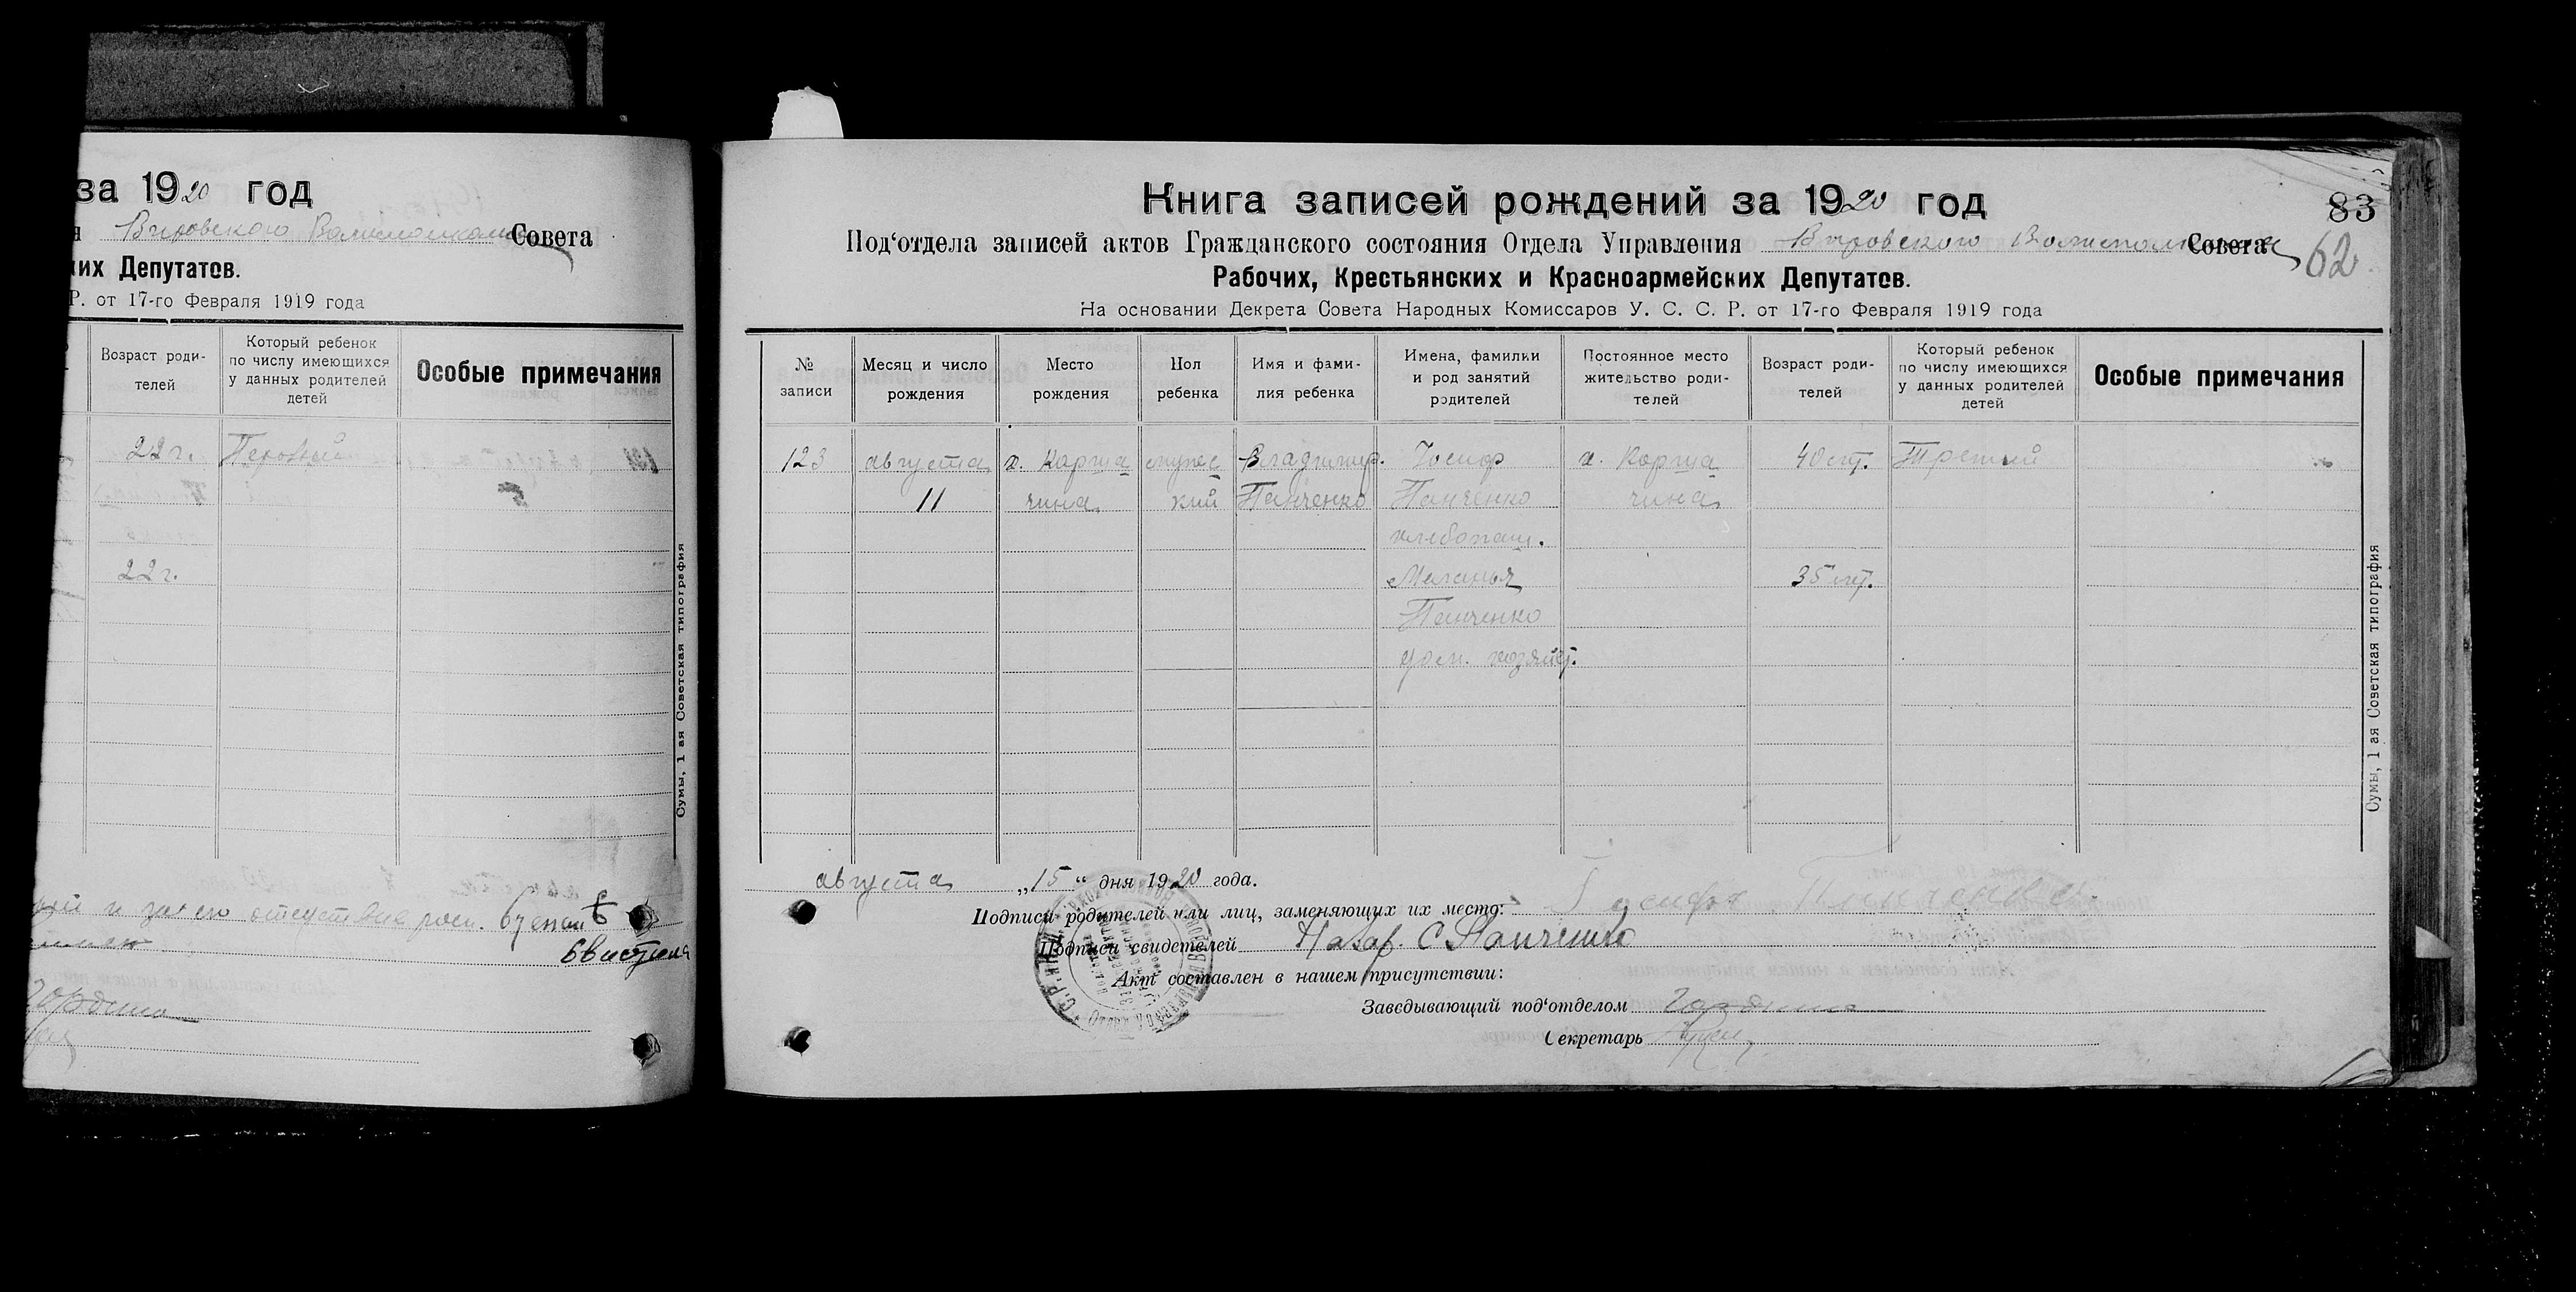 за 1920 год
Вировского Волисполкома Совета
их Депутатов.
Р. от 17-го Февраля 1919 года
Возраст роди-
телей
Который ребенок
по числу имеющихся
у данных родителей
детей
Особые примечания
22 г.
Первый
22 г.
отсутствие росп.
Сумы, 1 ая Советская типография
83
62
Книга записей рождений за 1920 год
Под‘отдела записей актов Гражданского состояния Отдела Управления Вировского Волисполкома Совета
Рабочих, Крестьянских и Красноармейских Депутатов.
На основании Декрета Совета Народных Комиссаров У. С. С. Р. от 17-го Февраля 1919 года
№
записи
Месяц и число
рождения
Место
рождения
Пол
ребенка
Имя и фами-
лия ребенка
Имена, фамилии
и род занятий
родителей
Постоянное место
жительство роди-
телей
Возраст роди-
телей
Который ребенок
по числу имеющихся
у данных родителей
детей
Особые примечания
123 августа х. Корша мужес Владимир. Иосиф х. Корша 40 лет. Третий
11 чина кий Панченко Панченко чина
хлебопаш.
Меланья 35 лет.
Панченко
дом. хозяйст.
августа „15“ дня 1920 года.
Подписи родителей или лиц, заменяющих их место: Панченко
Подписи свидетелей Назар. С Панченко
Акт составлен в нашем присутствии:
Заведывающий под‘отделом
Секретарь
Сумы, 1 ая Советская типография